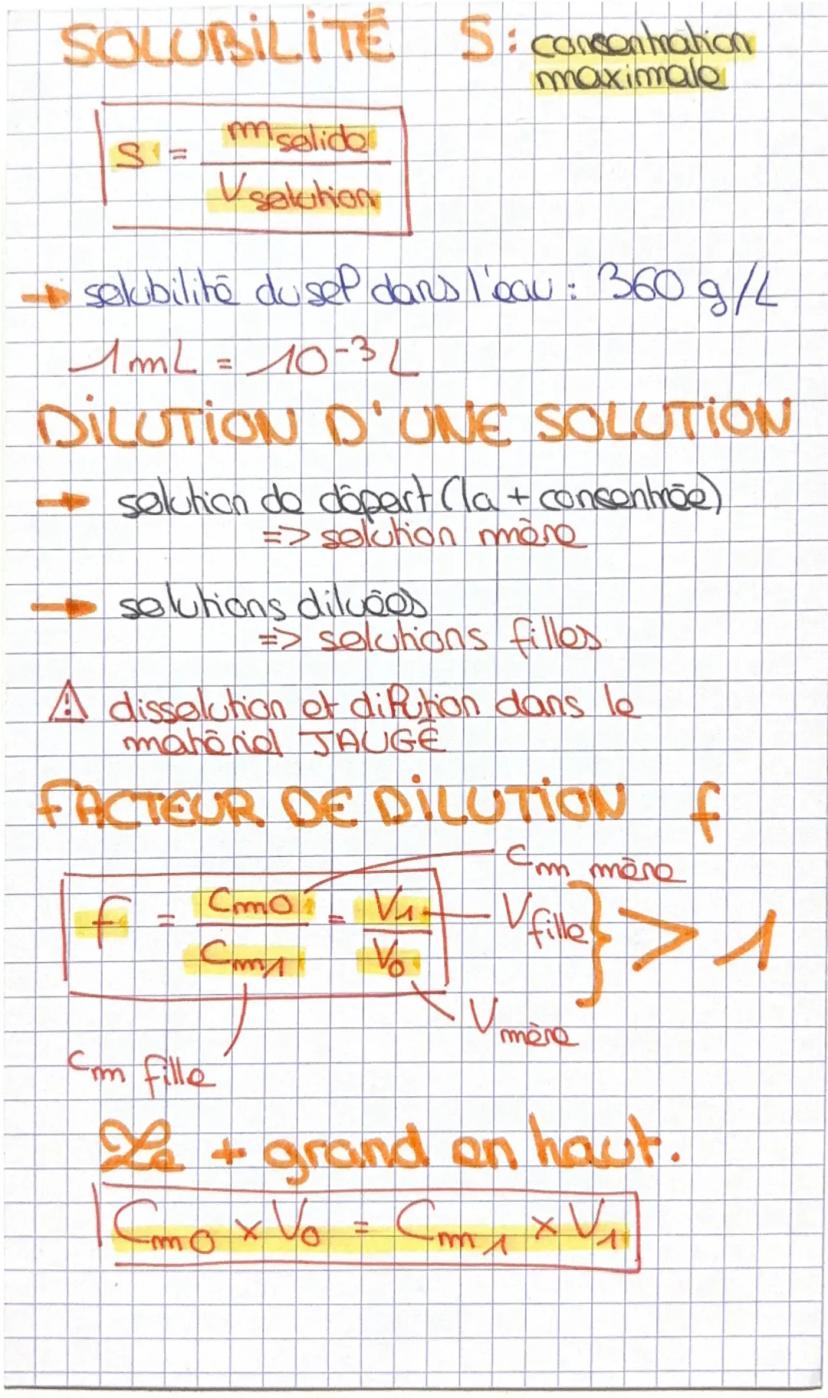 SOLUBILITÉ S: consentration
maximale
S = m solide / V solution
→ solubilité du sel dans l'eau : 360 g/L
1 mL = 10⁻³ L
DILUTION D'UNE SOLUTION
→ solution de départ (la + consentrée)
=> solution mère
→ solutions diluées
=> solutions filles
⚠ dissolution et dilution dans le
matériel JAUGÉ
FACTEUR DE DILUTION f
Cm mère
f = Cm0 / Cm1 = V1 / V0
V fille } > 1
V mère
Cm fille
Le + grand en haut.
Cm0 × V0 = Cm1 × V1